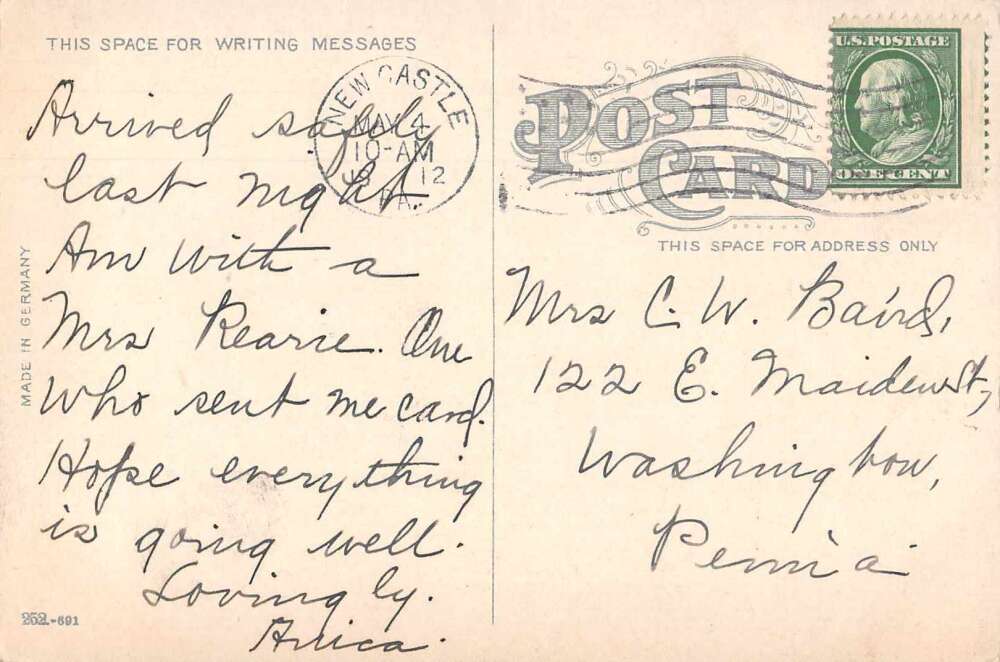 THIS SPACE FOR WRITING MESSAGES
Arrived safely
last night.
Am with a
Mrs Rearie. One
who sent me card.
Hope everything
is going well.
Lovingly.
MADE IN GERMANY
252.-691
NEW CASTLE
MAY 4
10-AM
12
PA.
POST
CARD
U.S. POSTAGE
ONE CENT
THIS SPACE FOR ADDRESS ONLY
Mrs C. W. Baird,
122 E. Maiden St,
Washington,
Penn'a